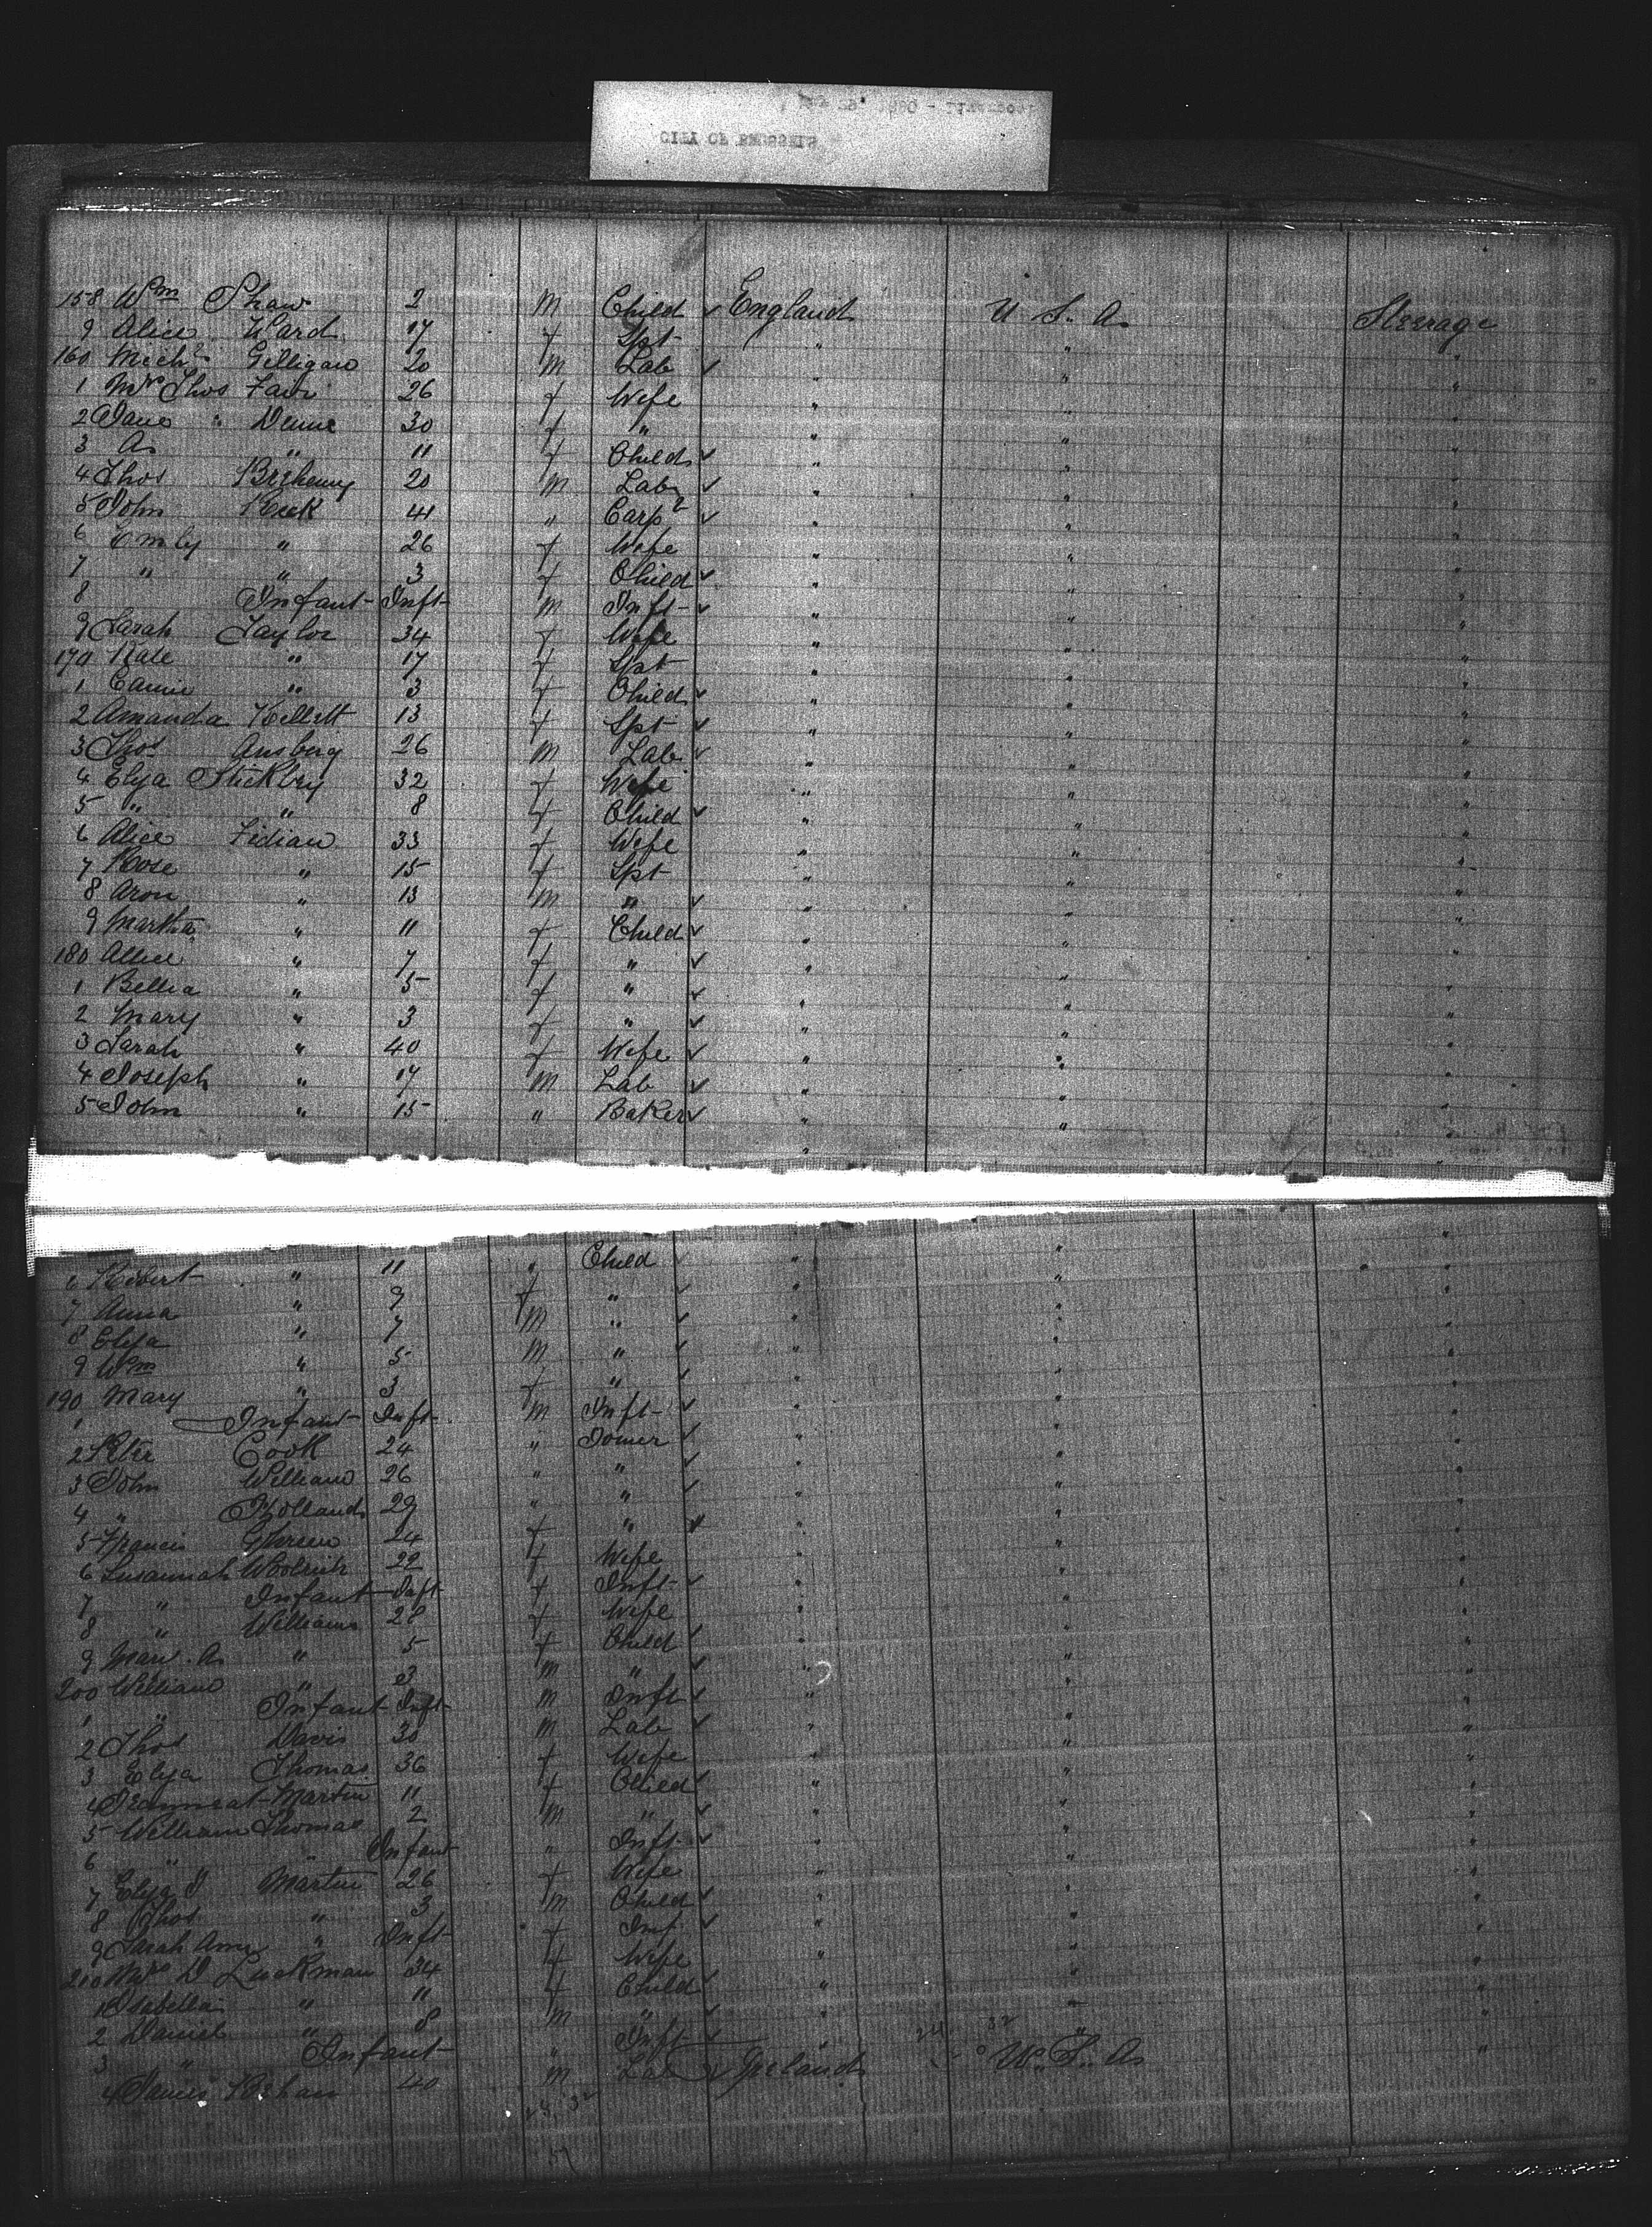 CITY OF BRUSSELS
158 Wm Shaw 2 m Child ✓ England U. S. A. Steerage
9 Alice Ward 17 f Spt " " "
160 Mich Gilligan 20 m Lab ✓ " " "
1 Mrs Thos 26 f Wife " " "
2 Jane " 30 f " " " "
3 A. " 11 f Child ✓ " " "
4 Thos 20 m Lab ✓ " " "
5 John Keek 41 " Carpr ✓ " " "
6 Emily " 26 f Wife " " "
7 " " 3 f Child ✓ " " "
8 Infant Inft m Inft ✓ " " "
9 Sarah Taylor 34 f Wife " " "
170 Kate " 17 f Spt " " "
1 " 3 f Child ✓ " " "
2 Amanda Kellett 13 f Spt ✓ " " "
3 Thos Ansberg 26 m Lab ✓ " " "
4 Eliza 32 f Wife " " "
5 " " 8 f Child ✓ " " "
6 Alice Fidian 33 f Wife " " "
7 Rose " 15 f Spt " " "
8 Aron " 13 m " ✓ " " "
9 Martha " 11 f Child ✓ " " "
180 Allice " 7 f " ✓ " " "
1 " 5 f " ✓ " " "
2 Mary " 3 f " ✓ " " "
3 Sarah " 40 f Wife ✓ " " "
4 Joseph " 17 m Lab ✓ " " "
5 John " 15 " Baker ✓ " " "
6 Robert " 11 " Child ✓ " " "
7 Anna " 9 f " ✓ " " "
8 Eliza " 7 m " ✓ " " "
9 Wm " 5 m " ✓ " " "
190 Mary " 3 f " ✓ " " "
1 Infant Inft m Inft ✓ " " "
2 Peter Cook 24 " ✓ " " "
3 John William 26 " " ✓ " " "
4 " Holland 29 " " ✓ " " "
5 Francis 24 f " " " "
6 Susannah Woolrich 22 f Wife " " "
7 " Infant Inft f Inft ✓ " " "
8 " Williams 28 f Wife " " "
9 Mary A. " 5 f Child ✓ " " "
200 William " 3 m " ✓ " " "
1 " Infant Inft m Inft ✓ " " "
2 Thos Davis 30 m Lab ✓ " " "
3 Eliza Thomas 36 f Wife " " "
4 Martin 11 f Child ✓ " " "
5 William Thomas 2 m " ✓ " " "
6 " " Infant " Inft ✓ " " "
7 Eliza J Martin 26 f Wife " " "
8 Thos " 3 m Child ✓ " " "
9 Sarah Ann " Inft f Inf ✓ " " "
210 Mrs D Luckman 34 f Wife " " "
1 Isabella " 11 f Child ✓ " " "
2 Daniel " 8 m " ✓ " " "
3 " Infant " Inft ✓ " " "
4 James 40 m Lab ✓ Ireland U. S. A. "